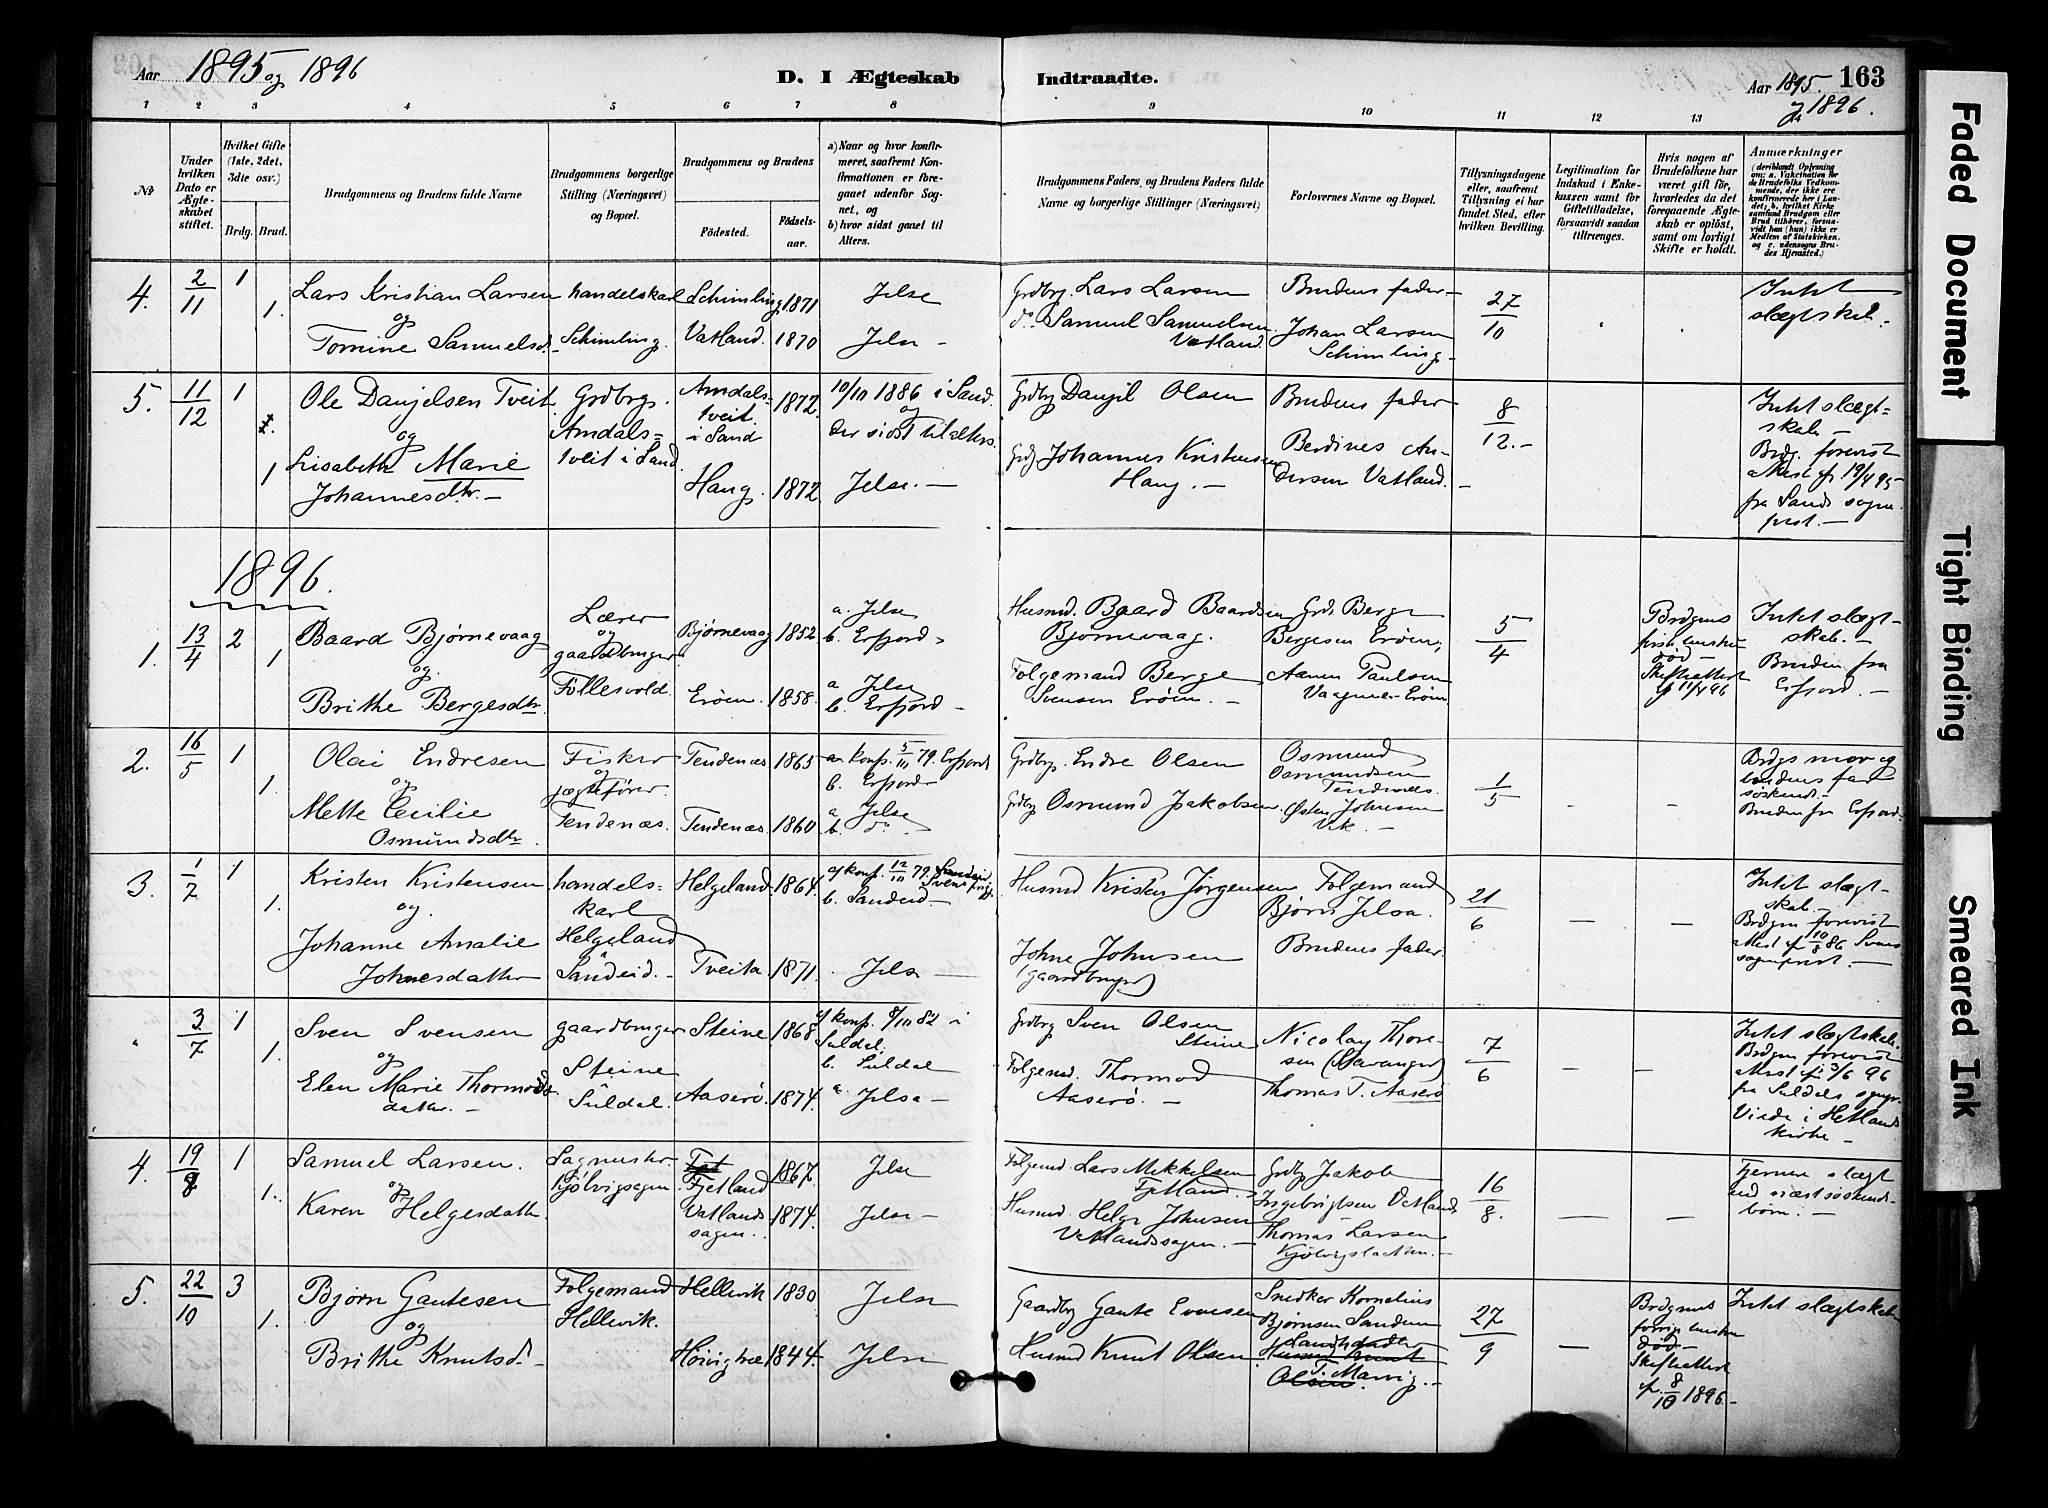 Aar 1895 og 1896
D. I Ægteskab Indtraadte.
Aar 1895. 163
og 1896.
1 2 3 4 5 6 7 8 9 10 11 12 13
No
Under hvilken Dato er Ægteskabet stiftet.
Hvilket Gifte (1ste, 2det, 3die osv.)
Brdg. Brud.
Brudgommens og Brudens fulde Navne
Brudgommens borgerlige Stilling (Næringsvei) og Bopæl.
Brudgommens og Brudens
Födested. Födselsaar.
a) Naar og hvor konfirmeret, saafremt Konfirmationen er foregaaet udenfor Sognet, og
b) hvor sidst gaaet til Alters.
Brudgommens Faders, og Brudens Faders fulde Navne og borgerlige Stillinger (Næringsvei)
Forlovernes Navne og Bopæl.
Tillysningsdagene eller, saafremt Tillysning ei har fundet Sted, efter hvilken Bevilling.
Legitimation for Indskud i Enkekassen samt for Giftetilladelse, forsaavidt saadan tiltrænges.
Hvis nogen af Brudefolkene har været gift før, hvorledes da det foregaaende Ægteskab er opløst, samt om lovligt Skifte er holdt.
Anmærkninger
(deriblandt Oplysning om: a. Vakcination for de Brudefolks Vedkommende, der ikke ere konfirmerede her i Landet, b. hvilket Kirkesamfund Brudgom eller Brud tilhører, forsaavidt han (hun) ikke er Medlem af Statskirken, og c. udensogns Brudes Hjemsted.)
4. 2/11 1 1.
Lars Kristian Larsen
og
Tomine Samuelsd.
handelskarl
Schimling.
Schimling 1871
Vatland. 1870
Jelse
Jelse -
Grdbrg. Lars Larsen
do Samuel Samuelsen
Vatland.
Brudens fader -
Johan Larsen
Schimling -
27/10
Intet
slægtskab. -
5. 11/12 1 1
Ole Danjelsen Tveit
og
Lisabeth Marie
Johannesdtr. -
Grdbrg.
Amdals=
tveit i Sand.
Amdals=
tveit
i Sand 1872.
Haug. 1872
10/10 1886 i Sand.
og
der sidst til alters.
Jelse. -
Grdbrg Danjel Olsen
Grdb Johannes Kristensen
Haug. -
Brudens fader
Berdines An-
dersen Vatland. -
8/12. -
Intet slægt-
skab. -
Brdg. forevist
Attest af 19/4 95
fra Sands sogne-
prest. -
1896.
1. 13/4 2 1
Baard Bjørnevaag
og
Brithe Bergesdtr.
Lærer
og
gaardbruger
Föllesvold.
Bjørnevaag 1852
Erøen. 1858.
a. Jelse
b. Erfjord -
a Jelse
b. Erfjord -
Husmd. Baard Baardsen
Bjørnevaag.
Folgemand Berge
Svensen Erøen. -
Grdb. Berge
Bergesen Erøen,
Aamn Paulsen
Vaagmer Erøen
5/4
Brdgms
første hustru
død -
Skifteattest
af 11/4 96
Intet slægt-
skab. -
Bruden fra
Erfjord. -
2. 16/5 1 1.
Olai Endresen
og
Mette Cecilie
Osmundsdtr.
Fisker
og
jægtefører.
Tendenæs.
Tendenæs 1863
Tendenæs. 1860
a. konf. 5/10 79. Erfjord
b. Erfjord -
a. Jelse
b. do
Grdbrg. Endre Olsen
Grdbrg Osmund Jakobsen
Osmund
Osmundsen
Tendenes.
Østen Johnsen
Vik. -
1/5
-
-
Brdgs mor og
brudens far
søskende. -
Bruden fra Erfjord.
3. 1/7 1 1.
Kristen Kristensen
og.
Johanne Amalie
Johnesdatter
handels-
karl
Helgeland
Sandeid. -
Helgeland 1864.
Tveita 1871.
a) konf. 12/10 79. Sandeid
b. Sandeid -
Jelse -
Husmd Kristen Jørgensen
Johne Johnsen
(gaardbruger)
Folgemand
Bjørn Jelsa.
Brudens fader.
21/6
-
-
Intet slægt-
skab. -
Brdgm forevist
Attest af 10/8 86
sogneprest. -
" 3/7 1 1.
Sven Svensen
og
Elen Marie Thormods
datter. -
gaardbruger
Steine
Suldal.
Steine 1868
Aaserø. 1874.
a) konf. 8/10 82 i
Suldal.
b. Suldal
a. Jelsa -
Grdbrg Sven Olsen
Steine
Folgemd. Thormod
Aaserø. -
Nicolay Thore-
sen (Stavanger)
Thomas T. Aaserø
7/6
-
-
Intet slægtskab.
Brdgm forevist
Attest af 3/6 96
fra Suldals sognepr.
Viede i Hetlands
kirke -
4. 19/9 1 1.
Samuel Larsen.
og
Karen Helgesdatter.
Sagmester.
Kjølvigsagen.
Fjetland 1867.
Vatlands
sagen. 1874.
Jelse
Jelse -
Folgemd. Lars Mikkelsen
Fjetland. -
Husmd Helge Johnsen
Vatlandssagen. -
Grdbrg Jakob
Ingebrigtsen Vatland
Thomas Larsen
16/8.
-
-
Fjernere slægt
end næstsøskende-
børn. -
5. 22/10 3 1.
Bjørn Gautesen
og
Brithe Knutsd. -
Folgemand
Hellevik.
Hellevik 1830
Høivigtræ 1844.
Jelse
Jelse
Gaardbrg Gaute Evensen
Husmd Knut Olsen
Snedker Kornelius
Bjørnsen Sanden
Landhandler
T. Marvig. -
27/9
-
Brdgms
forrige hustru
død -
Skifteattest
af. 8/10 1896. -
Intet slægtskab
Faded Document
Tight Binding
Smeared Ink